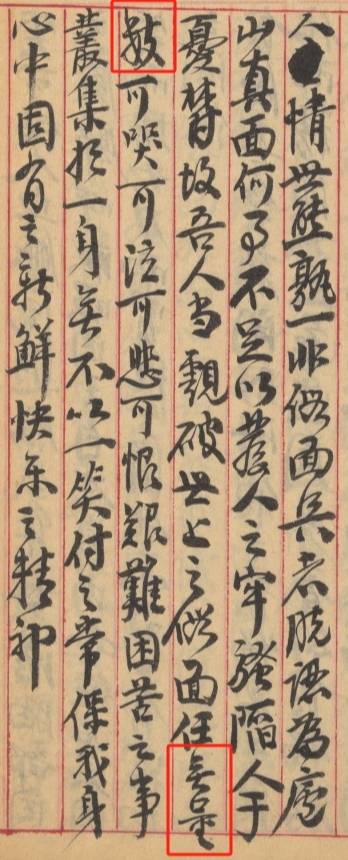 人情世態孰一非假面具若脱認為廬
山真面何事不足以發人之牢騷陷人于
憂鬱故吾人当覷破世上之假面任無量
數可哭可泣可悲可恨艱難困苦之事
叢集於一身無不以一笑付之常保我身
心中固有之新鮮快樂之精神